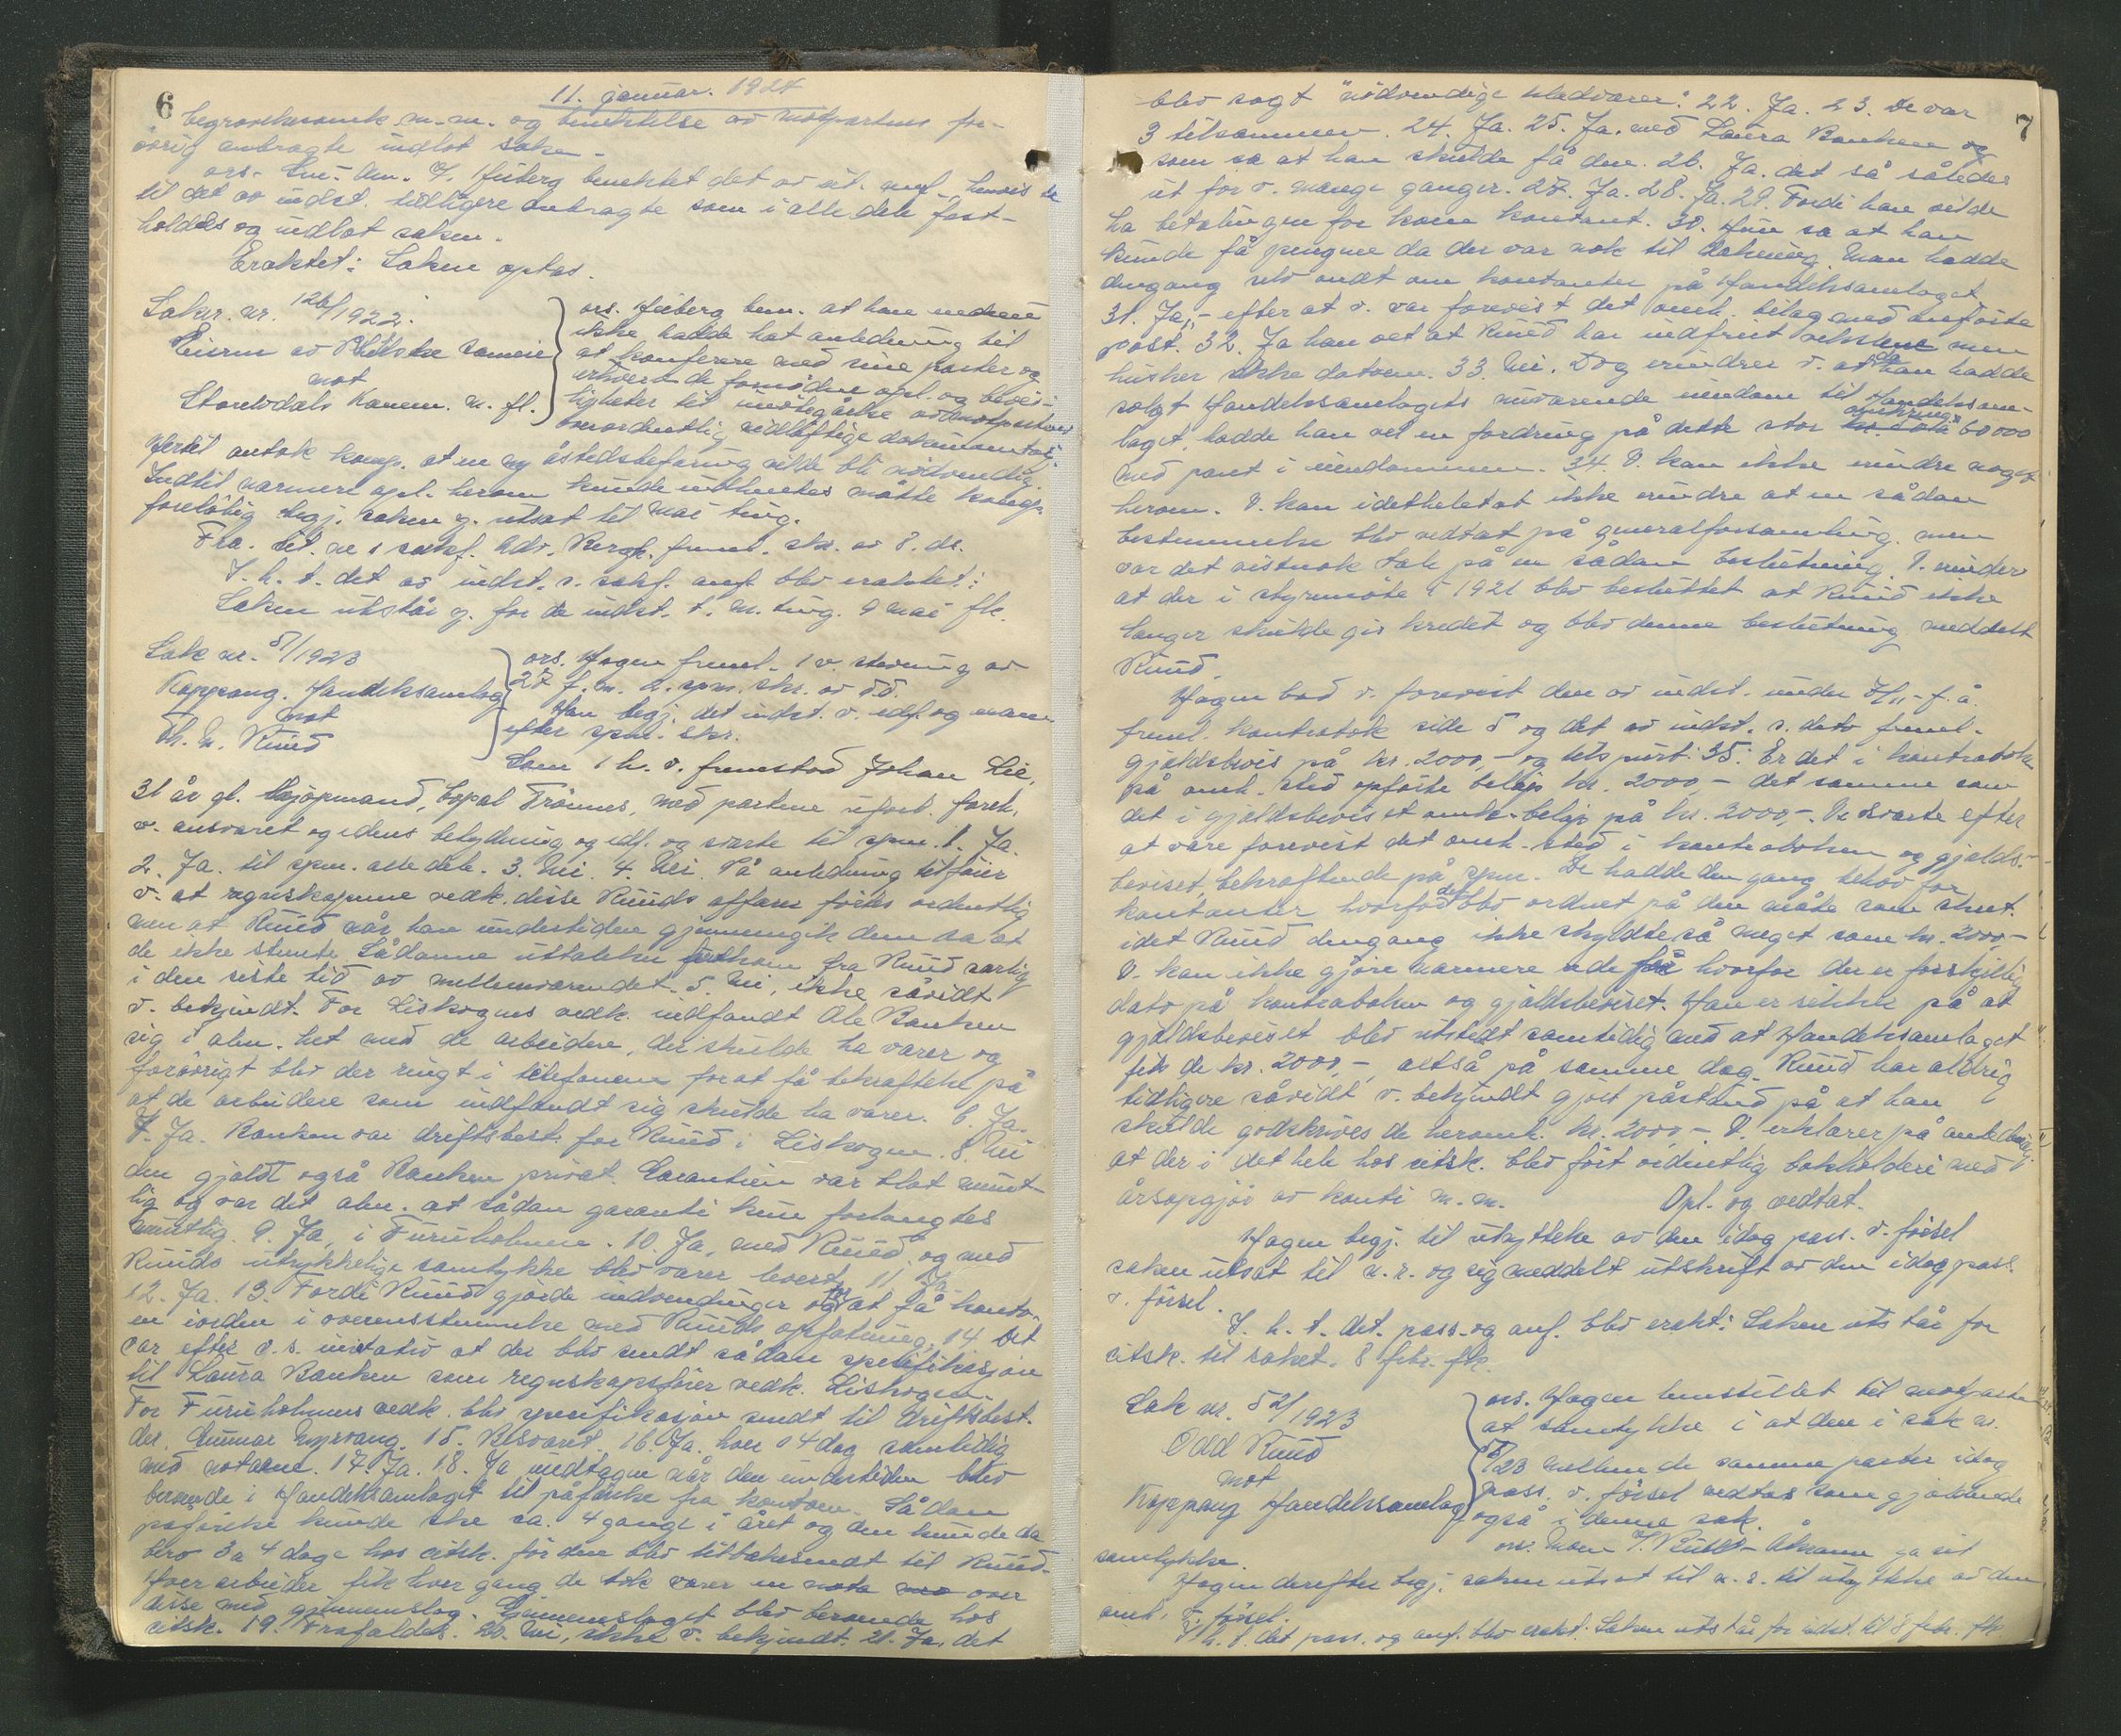 6
11. januar. 1924
begravelsesomk. m.m. og benektelse av motpartens for-
øvrig anbragte indlot saken.
ors. Hiberg benektet det av cit. anf. henvis
til det av indst. tidligere anbragte som i alle dele fast-
holdes og indlot saken.
Eraktet: Saken optas.
Sak nr. 126/1922.
Eierne av sameie
mot
Storelvdals kommu. m. fl.
ors. Hiberg bem. at han endnu
ikke hadde hat anledning til
at konferere med sine parter og
erhverve de fornødne opl. og bevis-
ligheter til imøtegåelse av motpartens
overordentlig vidløftige dokumentasj.
Hertil antok komp. at en ny åstedsbefaring vilde bli nødvendig.
Indtil nærmere opl. herom kunde måtte komp.
foreløbig begj. saken g. utsat til mai ting.
Fra cit. ne s sakf. adv. Bergh. freml. skr. av 8. ds.
I. h. t. det av indst. s. sakf. anf. blev eraktet:
Saken utstår g. for de indst. t. m. ting. 9 mai fk.
Sak nr. 51/1923
Koppang Handelssamlag
mot
Th. N. Ruud
ors. Hagen freml. 1 v. stevning av
27 f. m. 2. spm. skr. av d.d.
Han begj. det indst. v. edf. og
efter spm. skr.
Som 1 h. v. fremstod Johan Lie,
31 år gl. kjøpmand, bopæl Trønnes, med partene ubesl. foreh.
v. ansvaret og edens betydning og edf. og svarte til spm. 1. Ja.
2. Ja. til spm. alle dele. 3. Nei. 4. Nei. På anledning tilføier
v. at regnskapene vedk. disse Ruuds affærer førtes ordentlig
men at Ruud når han undertiden gjennemgik dem sa at
de ikke stemte. Sådanne uttalelser fra Ruud særlig
i den siste tid av mellemværendet. 5. Nei, ikke såvidt
v. bekjendt. For Liskogens vedk. indfandt Ole Banken
sig i alm.het med de arbeidere, der skulde ha varer og
forøvrigt blev der ringt i telefonen for at få bekræftelse på
at de arbeidere som indfandt sig skulde ha varer. 6. Ja.
7. Ja. Banken var driftsbest. for Ruud i Liskogen. 8. Nei
den gjaldt også Banken privat. Garantien var blot munt-
lig og var det alm. at sådan garanti kun forlangtes
muntlig. 9. Ja, i Furuholmen. 10. Ja, med Ruud og med
Ruuds uttrykkelige samtykke blev varer levert. 11. Ja
12. Ja. 13. Fordi Ruud gjorde indvendinger og for at få konto-
en iorden i overensstemmelse med Ruuds opfatning. 14. Det
var efter v. s. initiativ at der blev sendt sådan spesifikasjon
til Laura Banken som regnskapsfører vedk. Liskogen.
For Furuholmens vedk. blev spesifikasjon sendt til driftsbest.
der, Gunnar Myrvang. 15. Besvaret. 16. Ja. hver 14 dag samtidig
med notaene. 17. Ja. 18. Ja undtagen når den undertiden blev
beroende i Handelssamlaget til påførelse fra kontoen. Sådan
påførelse kunde ske ca. 4 gange i året og den kunde da
bero 3 a 4 dage hos citsk. før den blev tilbakesendt til Ruud.
Hver arbeider fik hver gang de tok varer en nota over
disse med gjennemslag. Gjennemslaget blev beroende hos
citsk. 19. Frafaldes. 20. Nei, ikke v. bekjendt. 21. Ja, det
7
blev sagt "nødvendige landvarer". 22. Ja. 23. De var
3 tilsammen. 24. Ja. 25. Ja. med Laura Banken og
som sa at han skulde få den. 26. Ja. det så således
ut for v. mange ganger. 27. Ja. 28. Ja. 29. Fordi han vilde
ha betalingen for kom kontant. 30. Hun sa at han
kunde få pengene da der var nok til dækning. Man hadde
dengang ondt om kontanter på Handelssamlaget
31. Ja, - efter at v. var forevist det omh. bilag med anførte
post. 32. Ja han vet at Ruud har indfriet vekslene men
husker ikke datoen. 33. Nei. Dog erindrer v. at da han hadde
solgt Handelssamlagets nuværende eiendom til Handelssam-
laget, hadde han vel en fordring på dette stor omkring 60000
med pant i eiendommen. 34. V. kan ikke erindre noget
herom. V. kan idetheletat ikke erindre at en sådan
bestemmelse blev vedtat på generalforsamling. men
var det vistnok tale på en sådan beslutning. V. erindrer
at der i styremøte i 1921 blev besluttet at Ruud ikke
længer skulde gis kredit og blev denne beslutning meddelt
Ruud.
Hagen bad v. forevist den av indst. under 7/11 - f. å.
freml. kontrabok side 5 og det av indst. s. dato freml.
gjældsbevis på kr. 2000,- og tilspurt: 35. Er det i kontraboken
på omh. sted opførte beløp kr. 2000,- det samme som
det i gjældsbeviset omh. beløp på kr. 2000,-. V. svarte efter
at være forevist det omh. sted i kontraboken og gjælds-
beviset, bekræftende på spm. De hadde den gang behov for
kontanter hvorfor det blev ordnet på den måte som skut.
idet Ruud dengang ikke skyldte så meget som kr. 2000-
V. kan ikke gjøre nærmere rede for hvorfor der er forskjellig
dato på kontraboken og gjældsbeviset. Han er sikker på at
gjældsbeviset blev utstedt samtidig med at Handelssamlaget
fik de kr. 2000,-, altså på samme dag. Ruud har aldrig
tidligere såvidt v. bekjendt gjort påstand på at han
skulde godskrives de heromh. kr. 2000,-. V. erklærer på anledning
at der i det hele hos citsk. blev ført ordentlig bokholderi med
årsopgjør av konti m.m. Opl. og vedtat.
Hagen begj. til utvirkelse av den idag pass. v. førsel
saken utsat til n. r. og sig meddelt utskrift av den idag pass.
v. førsel.
I. h. t. det. pass. og anf. blev erakt: Saken utstår for
citsk. til saket. 8 febr. fk.
Sak nr. 52/1923
Odd Ruud
mot
Koppang Handelssamlag
ors. Hagen henstillet til motparten
at samtykke i at den i sak nr.
51/23 mellem de samme parter idag
pass. v. førsel vedtas som gjældende
også i denne sak.
ors. ga sit
samtykke.
Hagen derefter begj. saken utsat til n. r. til utvirkelse av den
omh. v. førsel.
I. h. t. det pass. og anf. blev erakt: Saken utstår for indst. til 8 febr. fk